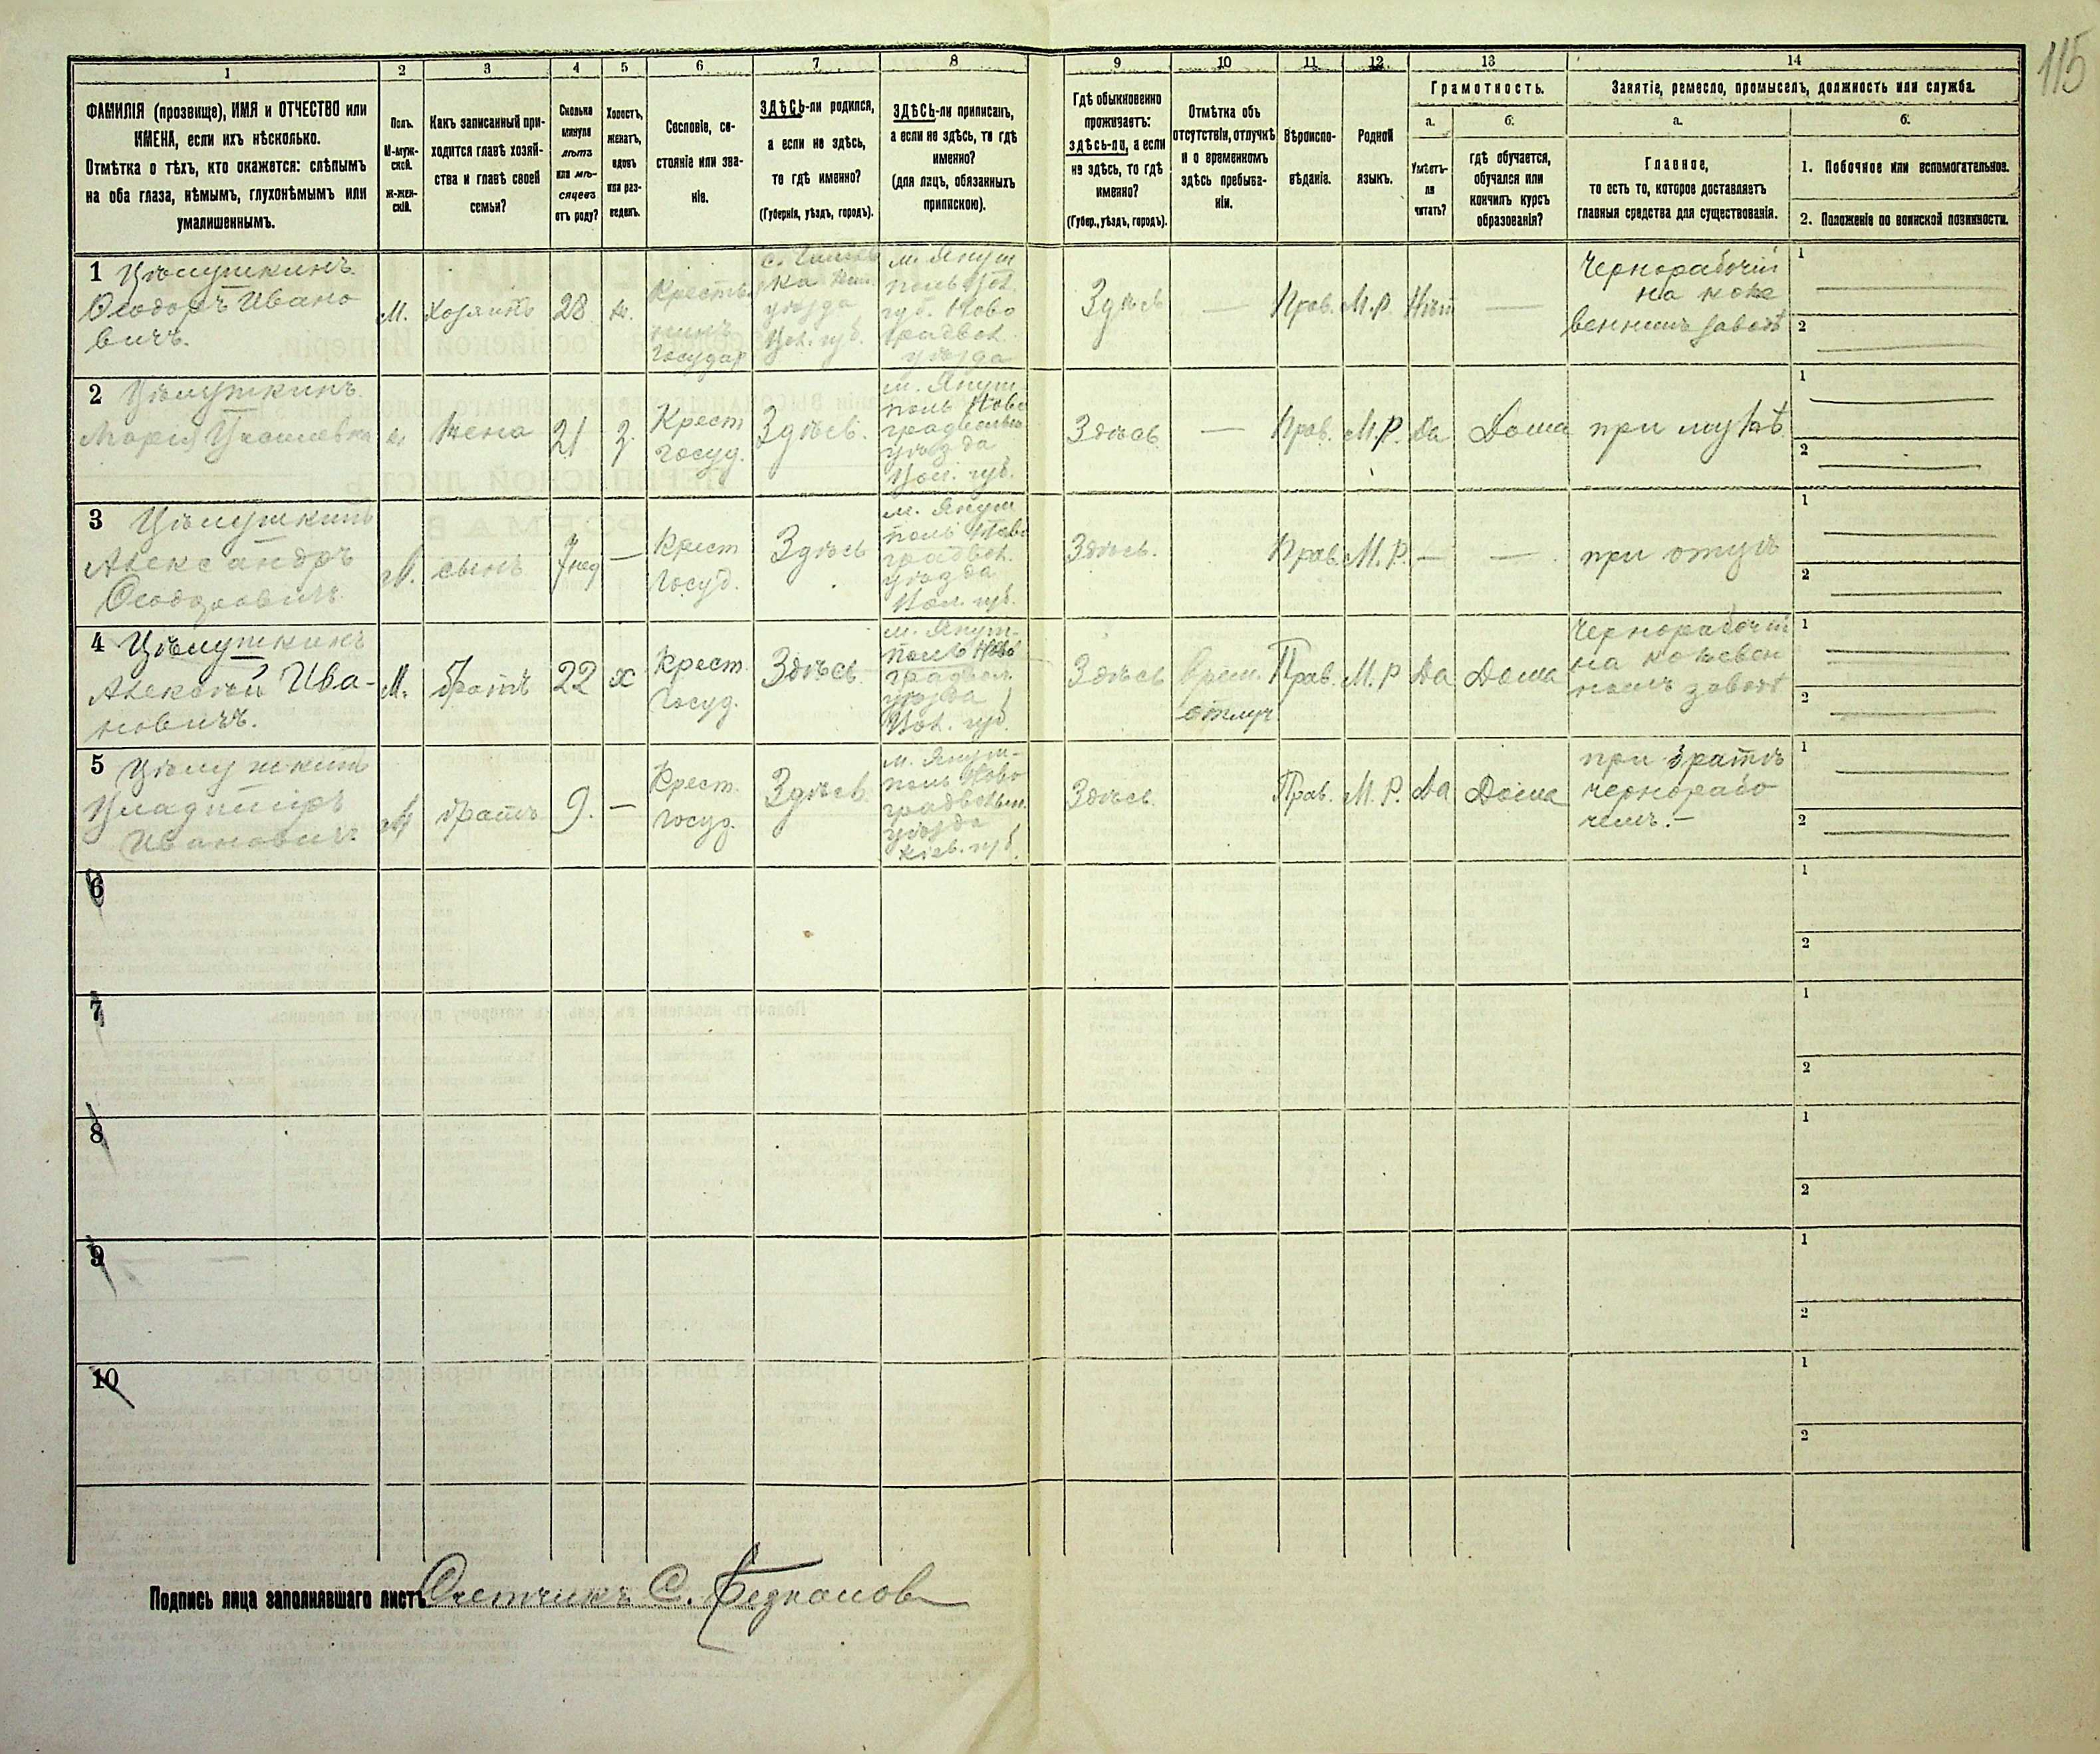 115
1 2 3 4 5 6 7 8 9 10 11 12 13 14
ФАМИЛІЯ (прозвище), ИМЯ и ОТЧЕСТВО или
ИМЕНА, если ихъ нѣсколько.
Отмѣтка о тѣхъ, кто окажется: слѣпымъ
на оба глаза, нѣмымъ, глухонѣмымъ или
умалишеннымъ.
Полъ.
М-муж-
ской.
Ж-жен-
скій.
Какъ записанный при-
ходится главѣ хозяй-
ства и главѣ своей
семьи?
Сколько
минуло
лѣтъ
или мѣ-
сяцевъ
отъ роду?
Холостъ,
женатъ,
вдовъ
или раз-
веденъ.
Сословіе, со-
стояніе или зва-
ніе.
ЗДѢСЬ-ли родился,
а если не здѣсь,
то гдѣ именно?
(Губернія, уѣздъ, городъ).
ЗДѢСЬ-ли приписанъ,
а если не здѣсь, то гдѣ
именно?
(для лицъ, обязанныхъ
припискою).
Гдѣ обыкновенно
проживаетъ:
здѣсь-ли, а если
не здѣсь, то гдѣ
именно?
(Губер., уѣздъ, городъ).
Отмѣтка объ
отсутствіи, отлучкѣ
и о временномъ
здѣсь пребыва-
ніи.
Вѣроиспо-
вѣданіе.
Родной
языкъ.
Грамотность.
а.
Умѣетъ-
ли
читать?
б.
гдѣ обучается,
обучался или
кончилъ курсъ
образованія?
Занятіе, ремесло, промыселъ, должность или служба.
а.
Главное,
то есть то, которое доставляетъ
главныя средства для существованія.
б.
1. Побочное или вспомогательное.
2. Положеніе по воинской повинности.
1 Цѣлушкинъ
Ѳеодоръ Ивано
вичъ.
М.
Хозяинъ
28
ж.
Крестья
нинъ
Государ
уѣзда
Вол. губ.
м. Януш
поль Вол.
губ. Ново
градвол.
уѣзда
Здѣсь
—
Прав.
М.Р.
Нѣт
—
Чернорабочій
на коже
венномъ заводѣ
1
2
2 Цѣлушкинъ
Марія
Жена
21
З.
Крест
Госуд.
Здѣсь.
м. Януш-
поль Ново
градволын
уѣзда
Вол. губ.
Здѣсь
—
Прав.
М.Р.
Да
Дома
при мужѣ
1
2
3 Цѣлушкинъ
Александръ
Ѳеодоровичъ
М.
сынъ
7 нед
—
Крест
Госуд.
Здѣсь
м. Януш
поль Ново
градвол.
уѣзда
Вол. губ.
Здѣсь.
Прав.
М.Р.
—
—
при отцѣ
1
2
4 Цѣлушкинъ
Алексѣй Ива-
новичъ.
М.
братъ
22
х
Крест
Госуд.
Здѣсь
м. Януш-
поль Ново
градвол.
уѣзда
Вол. губ.
Здѣсь
Врем.
отлуч
Прав.
М.Р
Да
Дома
Чернорабочій
на кожевен
номъ заводѣ
1
2
5 Цѣлушкинъ
Владиміръ
Ивановичъ
М
братъ
9.
—
Крест.
Госуд.
Здѣсь.
м. Януш-
поль Ново
градволын.
уѣзда
Кіев. губ.
Здѣсь.
Прав.
М.Р.
Да
Дома
при братѣ
чернорабо
чемъ.—
1
2
6
1
2
7
1
2
8
1
2
9
1
2
10
1
2
Подпись лица заполнявшаго листъ Счетчикъ С.